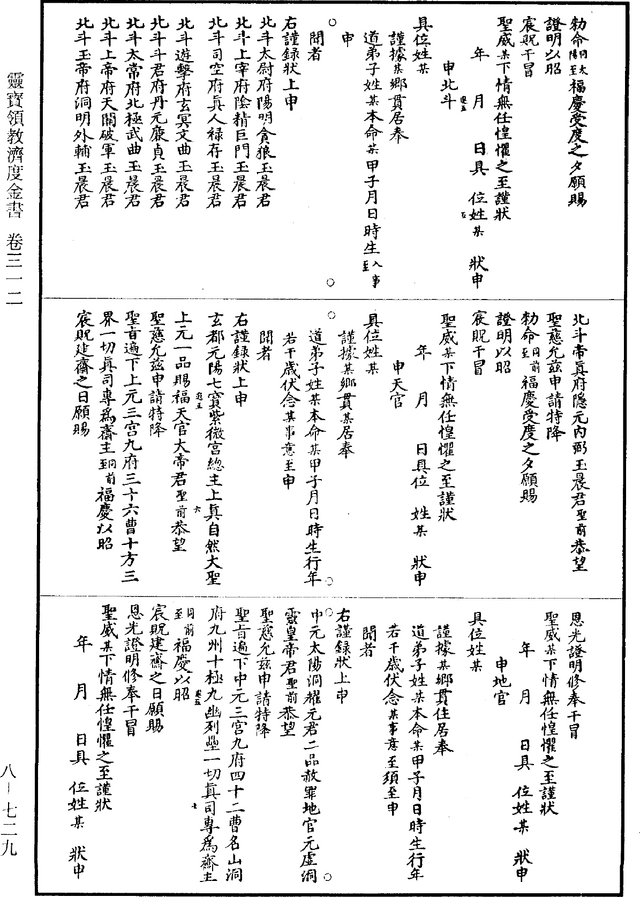 勑命同太陽至福慶受度之夕願賜
證明以昭
宸貺干冒
聖威某下情無任惶懼之至謹狀
年　月　日具　位姓某　狀申
申北斗
具位姓某
謹據某鄉貫居奉
道弟子姓某本命某甲子月日時生入事至
申
聞者
右謹録狀上申
北斗太尉府陽明貪狼玉晨君
北斗上宰府陰精巨門玉晨君
北斗司空府真人禄存玉晨君
北斗遊擊府玄冥文曲玉晨君
北斗斗君府丹元廉貞玉晨君
北斗太常府北極武曲玉晨君
北斗上帝府天關破軍玉晨君
北斗玉帝府洞明外輔玉晨君
北斗帝真府隱元內弼玉晨君聖前恭望
聖慈允兹申請特降
勑命同前至福慶受度之夕願賜
證明以昭
宸貺干冒
聖威某下情無任惶懼之至謹狀
年　月　日具位　姓某　狀申
申天官
具位姓某
謹據某鄉貫某居奉
道弟子姓某本命某甲子月日時生行年
若干歲伏念某事意至申
聞者
右謹録狀上申
玄都元陽七寶紫微宮總主上真自然大聖
上元一品賜福天官大帝君聖前恭望
聖慈允兹申請特降
聖旨遍下上元三宮九府三十六曹十方三
界一切真司專為齋主同前至福慶以昭
宸貺建齋之日願賜
恩光證明修奉干冒
聖威某下情無任惶懼之至謹狀
年　月　日具　位姓某　狀申
申地官
具位姓某
謹據某鄉貫住居奉
道弟子姓某本命某甲子月日時生行年
若干歲伏念某事意至須至申
聞者
右謹録狀上申
中元太陽洞耀元君二品赦罪地官元虛洞
靈皇帝君聖前恭望
聖慈允兹申請特降
聖旨遍下中元三宮九府四十二曹名山洞
府九州十極九幽列壘一切真司專為齋主
同前至福慶以昭
宸貺建齋之日願賜
恩光證明修奉干冒
聖威某下情無任惶懼之至謹狀
年　月　日具　位姓某　狀申
靈寶領教濟度金書　卷三一二
八－七二九